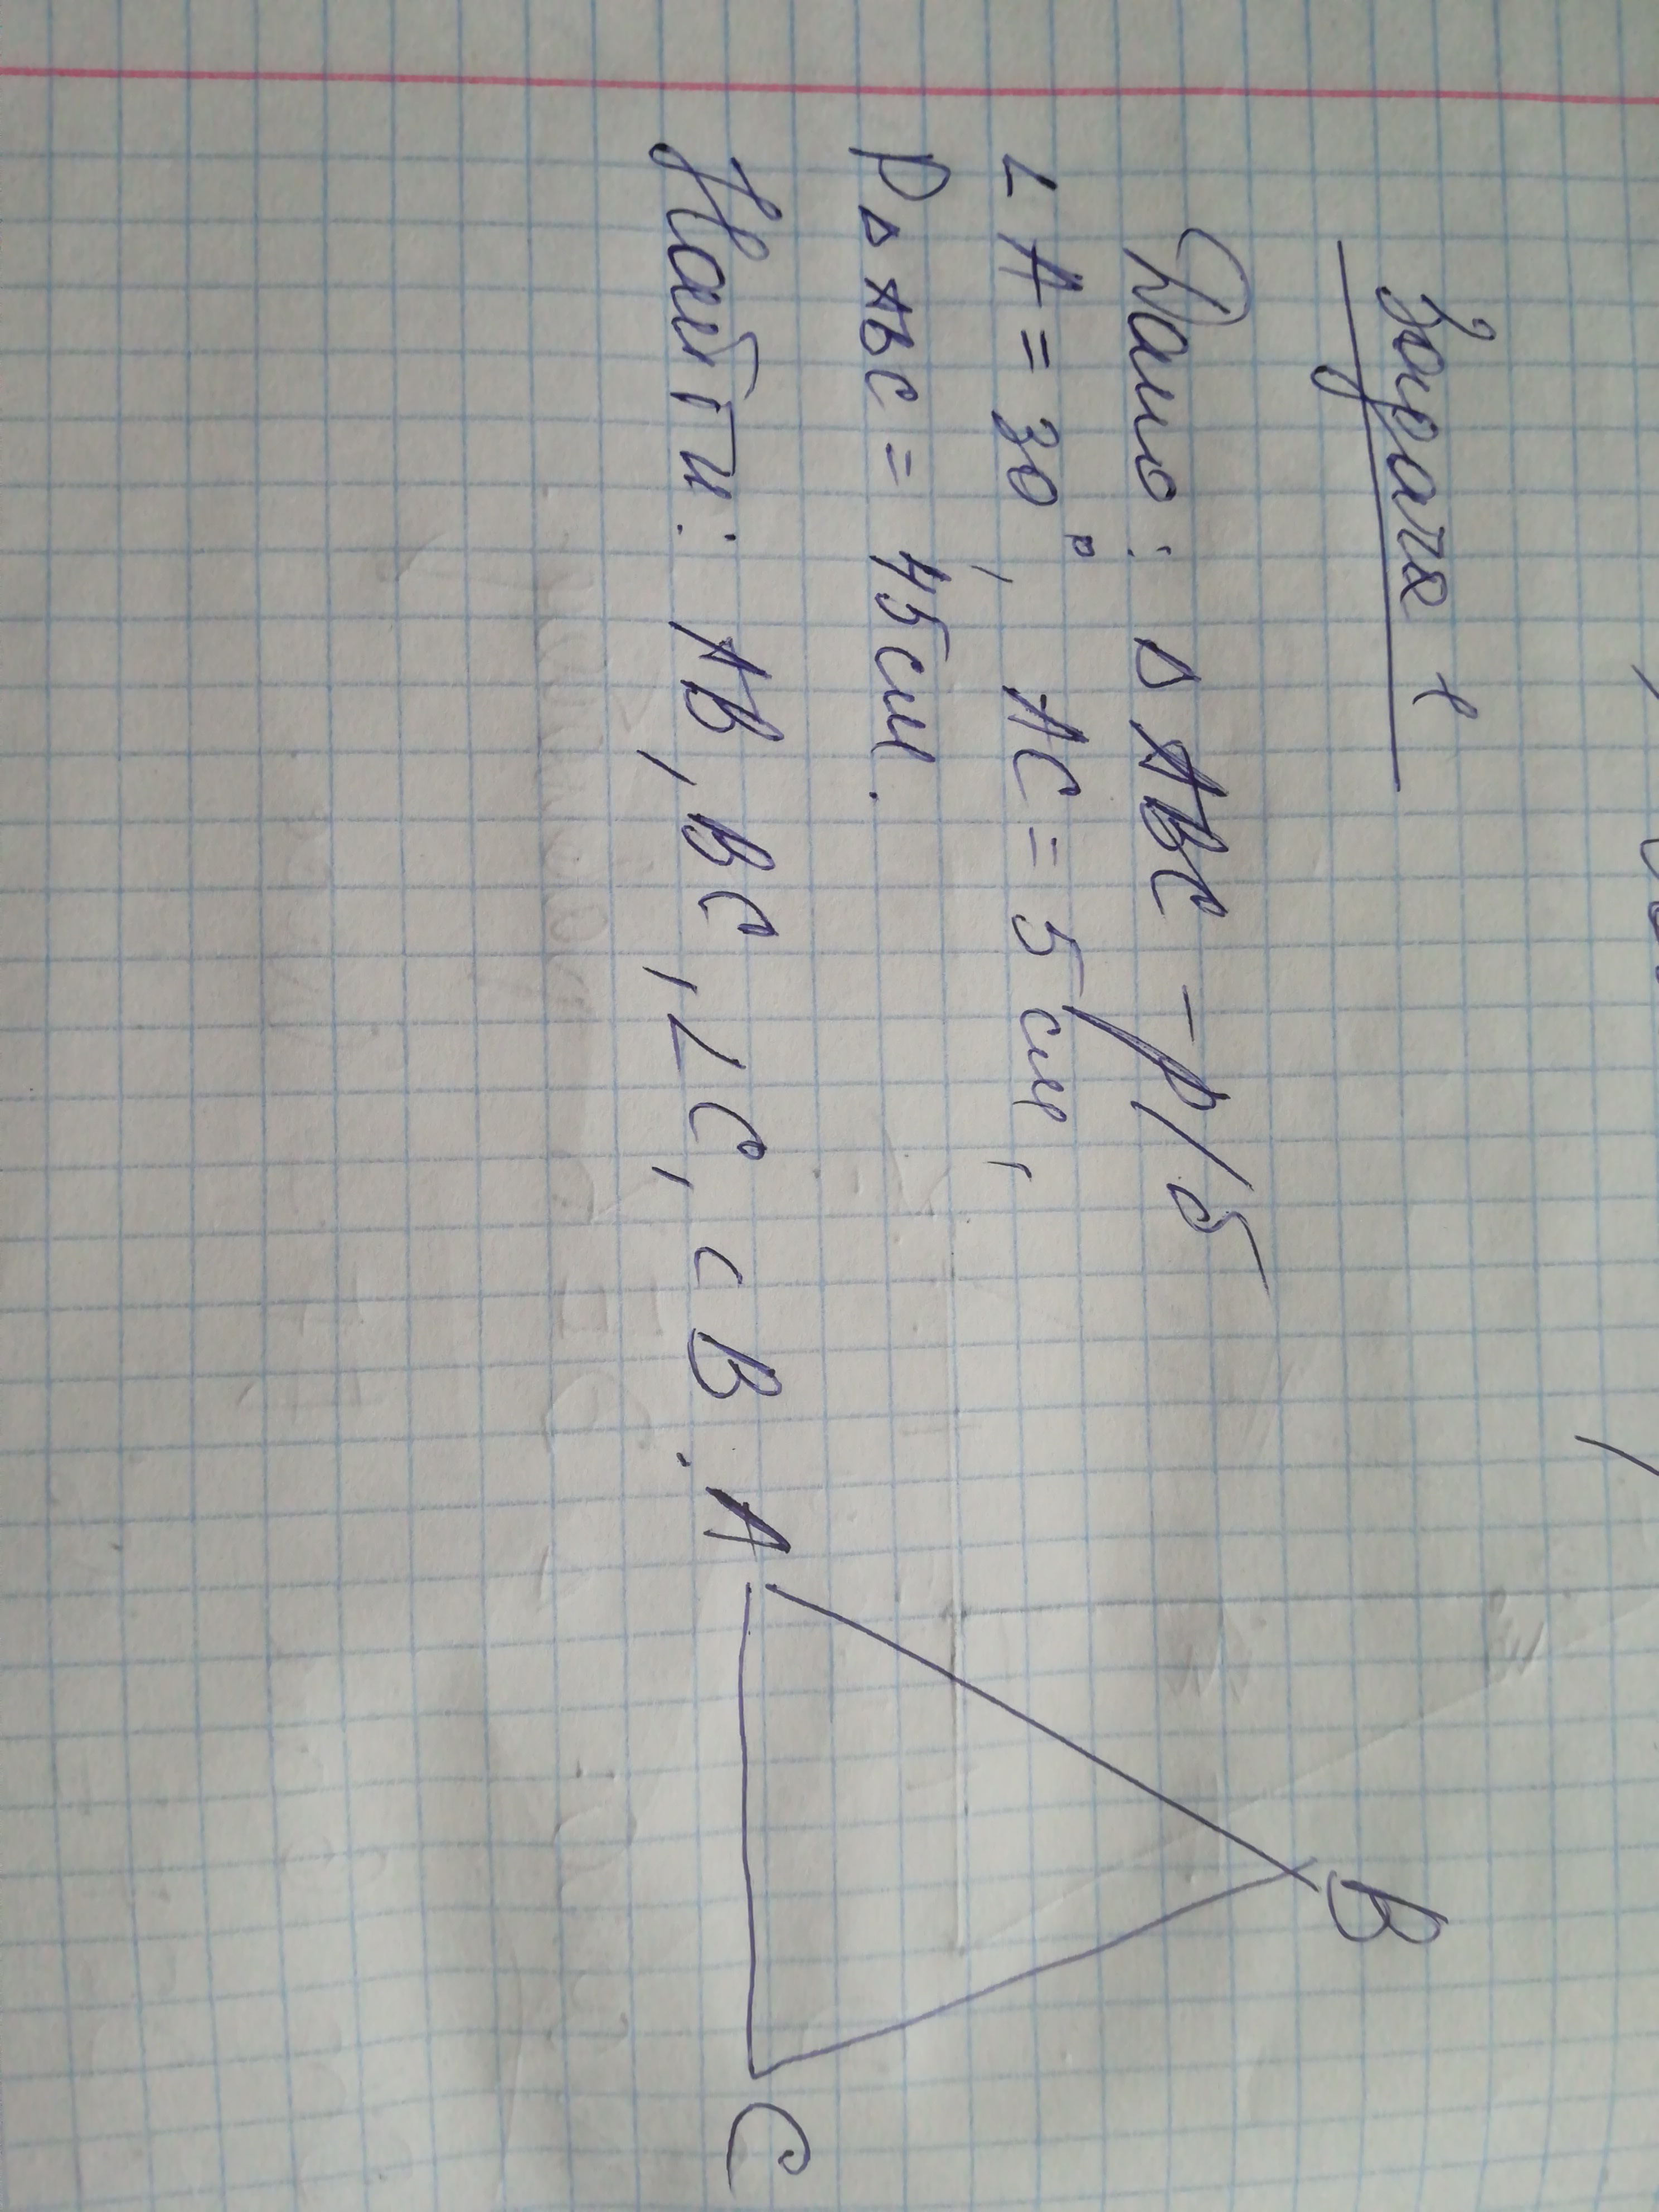 Задача 1
Дано: Δ ABC - р/б
∠A = 30°, AC = 5 см,
P Δ ABC = 45 см.
Найти: AB, BC, ∠C, ∠B.
A
B
C